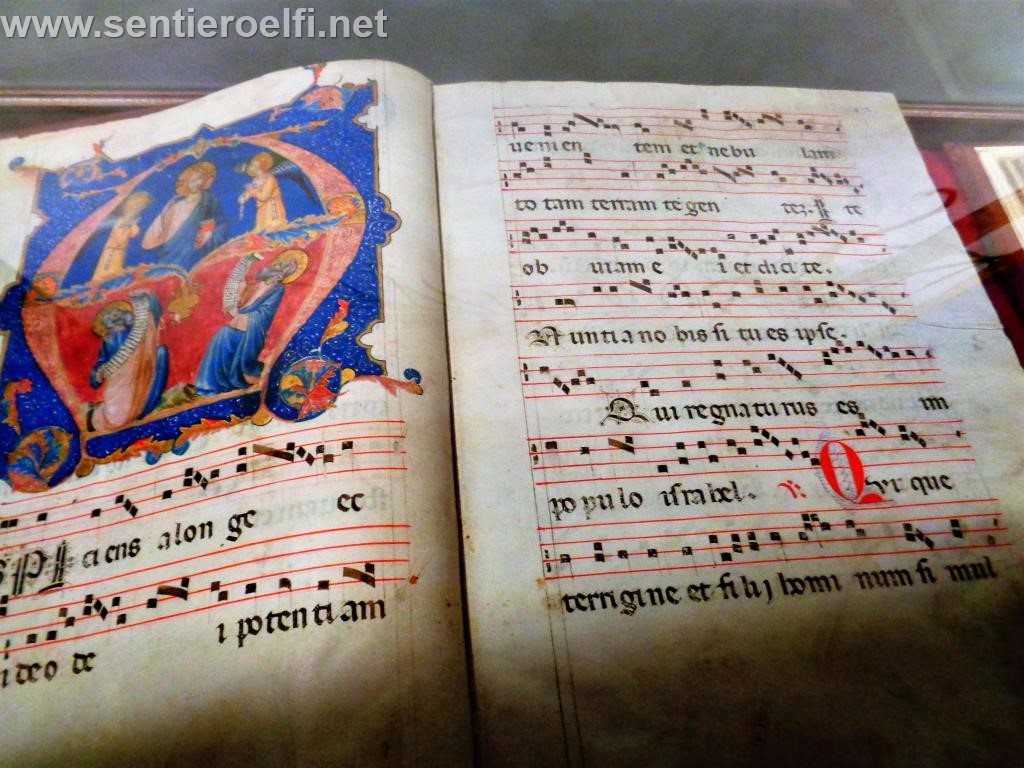 www.sentieroelfi.net
SPI ciens alon ge ec
ideo de i potentiam
uenien tem et nebu lam
to tam terram te gen tez. I te
ob uiam e i et dici te.
Nuntia no bis si tu es ipse.
Qui regnaturus es in
populo israhel. V. Qui que
terrigine et filij homi num si mul